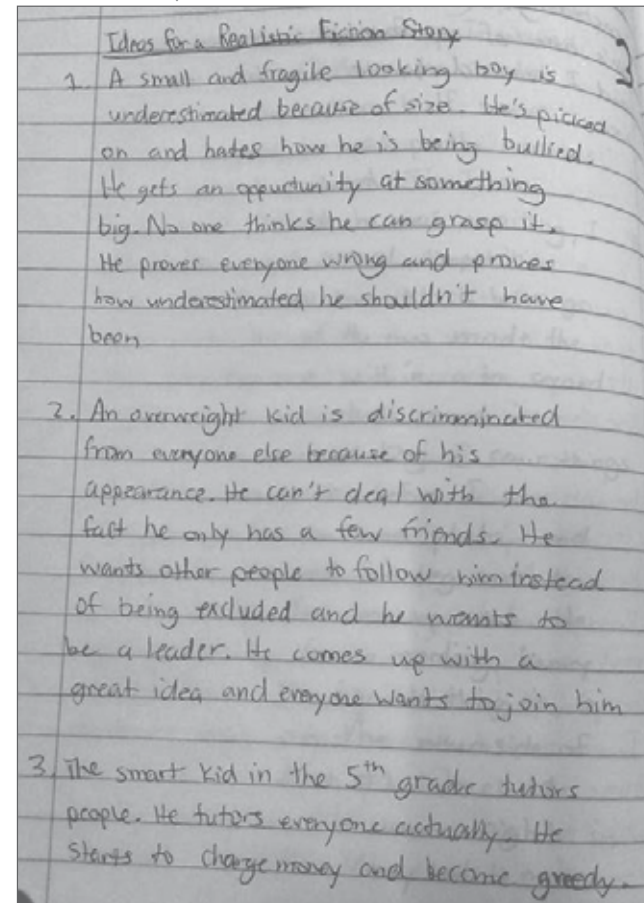 Ideas for a Realistic Fiction Story
3
1. A small and fragile looking boy is
underestimated because of size. He's picked
on and hates how he is being bullied.
He gets an oppuctunity at something
big. No one thinks he can grasp it.
He proves everyone wrong and proves
how underestimated he shouldn't have
been
2. An overweight kid is discrimminated
from everyone else because of his
appearance. He can't deal with the
fact he only has a few friends. He
wants other people to follow him instead
of being excluded and he wants to
be a leader. He comes up with a
great idea and everyone wants to join him
3. The smart kid in the 5th grade tutors
people. He tutors everyone actually. He
starts to charge money and become greedy.